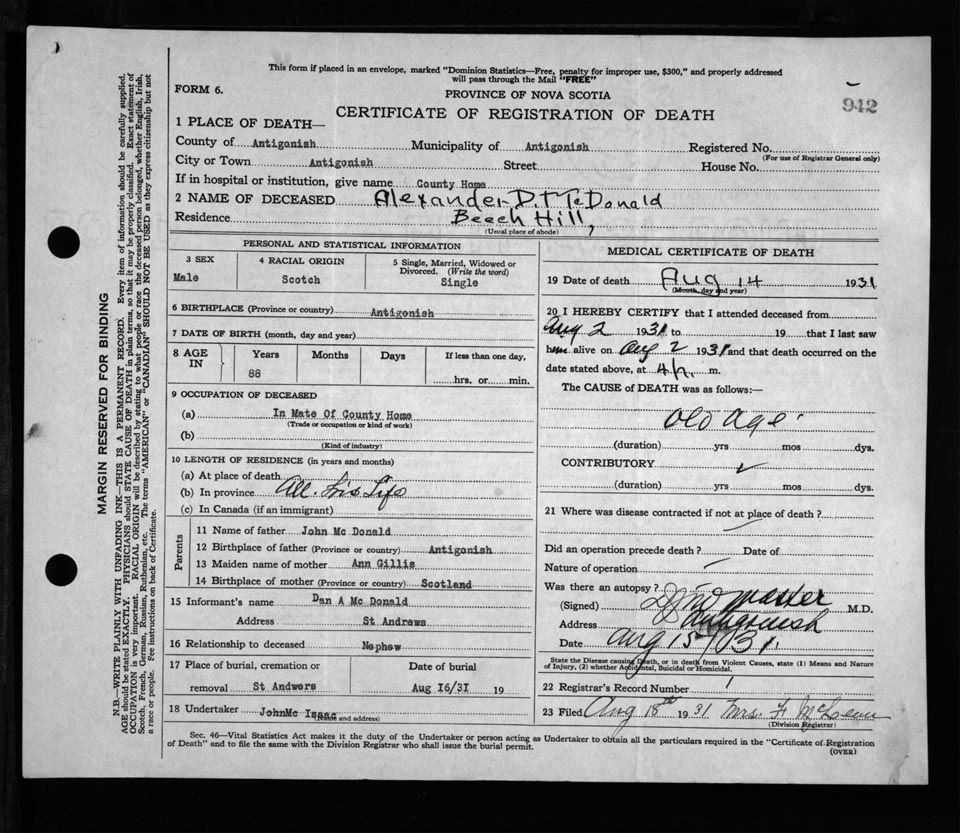 This form if placed in an envelope, marked "Dominion Statistics—Free, penalty for improper use, $300," and properly addressed
will pass through the Mail "FREE"
FORM 6.
PROVINCE OF NOVA SCOTIA
942
CERTIFICATE OF REGISTRATION OF DEATH
1 PLACE OF DEATH—
County of Antigonish Municipality of Antigonish Registered No.
(For use of Registrar General only)
City or Town Antigonish Street House No.
If in hospital or institution, give name County Home
2 NAME OF DECEASED Alexander D. McDonald
Residence Beech Hill,
(Usual place of abode)
PERSONAL AND STATISTICAL INFORMATION
3 SEX 4 RACIAL ORIGIN 5 Single, Married, Widowed or
Divorced. (Write the word)
Male Scotch Single
6 BIRTHPLACE (Province or country) Antigonish
7 DATE OF BIRTH (month, day and year)
8 AGE IN Years Months Days If less than one day,
88 hrs. or min.
9 OCCUPATION OF DECEASED
(a) In Mate Of County Home
(Trade or occupation or kind of work)
(b)
(Kind of industry)
10 LENGTH OF RESIDENCE (in years and months)
(a) At place of death
(b) In province All his Life
(c) In Canada (if an immigrant)
Parents
11 Name of father John Mc Donald
12 Birthplace of father (Province or country) Antigonish
13 Maiden name of mother Ann Gillis
14 Birthplace of mother (Province or country) Scotland
15 Informant's name Dan A Mc Donald
Address St Andrews
16 Relationship to deceased Nephew
17 Place of burial, cremation or Date of burial
removal St Andwers Aug 16/31 19
18 Undertaker JohnMc Isaac
(Name and address)
MEDICAL CERTIFICATE OF DEATH
19 Date of death Aug 14 1931
(Month, day and year)
20 I HEREBY CERTIFY that I attended deceased from
Aug 2 1931 to 19 that I last saw
him alive on Aug 2 1931 and that death occurred on the
date stated above, at 4 m.
The CAUSE of DEATH was as follows:—
Old Age
(duration) yrs mos dys.
CONTRIBUTORY
(duration) yrs mos dys.
21 Where was disease contracted if not at place of death?
Did an operation precede death? Date of
Nature of operation
Was there an autopsy?
(Signed) M.D.
Address Antigonish
Date Aug 15 1931
State the Disease causing Death, or in death from Violent Causes, state (1) Means and Nature
of Injury, (2) whether Accidental, Suicidal or Homicidal.
22 Registrar's Record Number 1
23 Filed Aug 18th 1931 Mrs. F McLean
(Division Registrar)
Sec. 46—Vital Statistics Act makes it the duty of the Undertaker or person acting as Undertaker to obtain all the particulars required in the "Certificate of Registration
of Death" and to file the same with the Division Registrar who shall issue the burial permit.
(OVER)
MARGIN RESERVED FOR BINDING
N.B.—WRITE PLAINLY WITH UNFADING INK—THIS IS A PERMANENT RECORD. Every item of information should be carefully supplied.
AGE should be stated EXACTLY. PHYSICIANS should STATE CAUSE OF DEATH in plain terms, so that it may be properly classified. Exact statement of
OCCUPATION is very important. RACIAL ORIGIN will be described by stating to what people or race the deceased person belonged, whether English, Irish,
Scotch, French, German, Russian, Ruthenian, etc. The terms "AMERICAN" or "CANADIAN" SHOULD NOT BE USED as they express citizenship but not
a race or people. See instructions on back of Certificate.